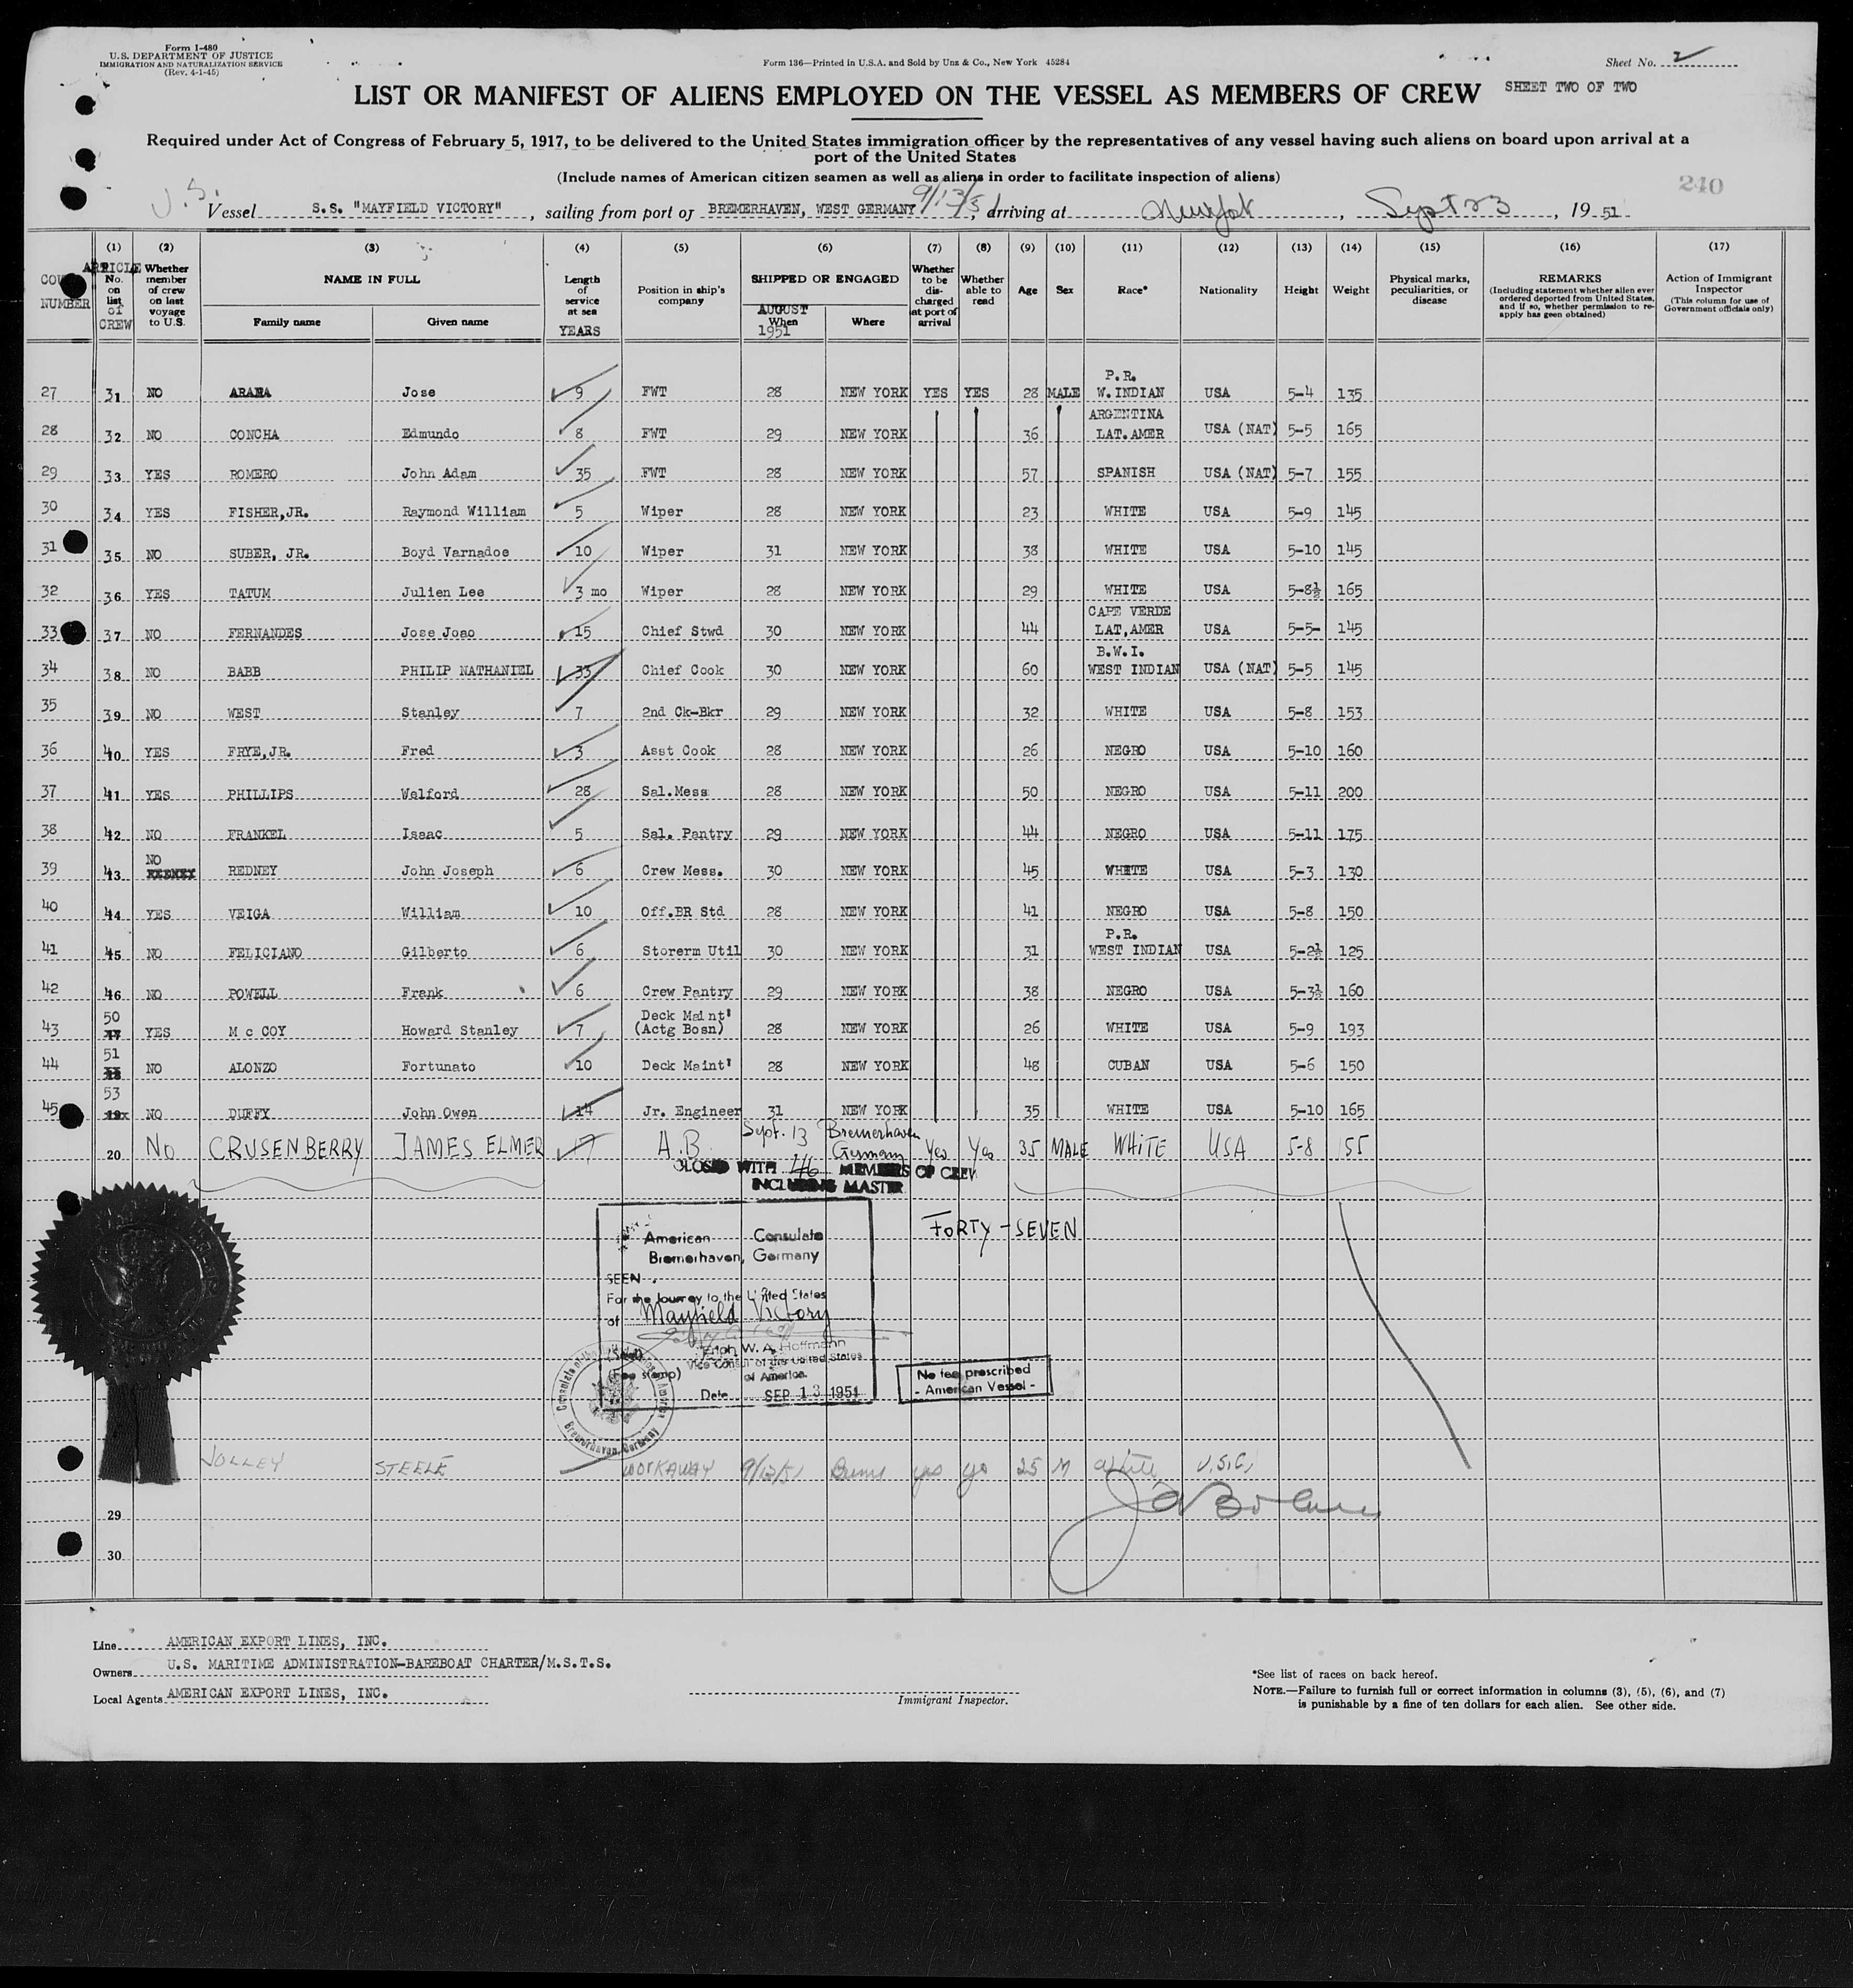 Form I-480
U.S. DEPARTMENT OF JUSTICE
IMMIGRATION AND NATURALIZATION SERVICE
(Rev. 4-1-45)
Form 136—Printed in U.S.A. and Sold by Unz & Co., New York 45284
Sheet No. 2
LIST OR MANIFEST OF ALIENS EMPLOYED ON THE VESSEL AS MEMBERS OF CREW SHEET TWO OF TWO
Required under Act of Congress of February 5, 1917, to be delivered to the United States immigration officer by the representatives of any vessel having such aliens on board upon arrival at a
port of the United States
(Include names of American citizen seamen as well as aliens in order to facilitate inspection of aliens)
240
U.S. Vessel S.S. "MAYFIELD VICTORY", sailing from port of BREMERHAVEN, WEST GERMANY 9/13/51, arriving at New York, Sept 23, 19 51
(1) (2) (3) (4) (5) (6) (7) (8) (9) (10) (11) (12) (13) (14) (15) (16) (17)
NUMBER
ARTICLE No. on list of CREW
Whether member of crew on last voyage to U.S.
NAME IN FULL
Family name Given name
Length of service at sea YEARS
Position in ship's company
SHIPPED OR ENGAGED
AUGUST When 1951 Where
Whether to be discharged at port of arrival
Whether able to read
Age Sex Race* Nationality Height Weight
Physical marks, peculiarities, or disease
REMARKS
(Including statement whether alien ever ordered deported from United States, and if so, whether permission to re-apply has geen obtained)
Action of Immigrant Inspector
(This column for use of Government officials only)
27 31 NO ARAHA Jose 9 FWT 28 NEW YORK YES YES 28 MALE P.R. W.INDIAN USA 5-4 135
28 32 NO CONCHA Edmundo 8 FWT 29 NEW YORK 36 ARGENTINA LAT.AMER USA (NAT) 5-5 165
29 33 YES ROMERO John Adam 35 FWT 28 NEW YORK 57 SPANISH USA (NAT) 5-7 155
30 34 YES FISHER,JR. Raymond William 5 Wiper 28 NEW YORK 23 WHITE USA 5-9 145
31 35 NO SUBER, JR. Boyd Varnadoe 10 Wiper 31 NEW YORK 38 WHITE USA 5-10 145
32 36 YES TATUM Julien Lee 3 mo Wiper 28 NEW YORK 29 WHITE USA 5-8½ 165
33 37 NO FERNANDES Jose Joao 15 Chief Stwd 30 NEW YORK 44 CAPE VERDE LAT,AMER USA 5-5- 145
34 38 NO BABB PHILIP NATHANIEL 33 Chief Cook 30 NEW YORK 60 B.W.I. WEST INDIAN USA (NAT) 5-5 145
35 39 NO WEST Stanley 7 2nd Ck-Bkr 29 NEW YORK 32 WHITE USA 5-8 153
36 40 YES FRYE,JR. Fred 3 Asst Cook 28 NEW YORK 26 NEGRO USA 5-10 160
37 41 YES PHILLIPS Welford 28 Sal.Mess 28 NEW YORK 50 NEGRO USA 5-11 200
38 42 NO FRANKEL Isaac 5 Sal. Pantry 29 NEW YORK 44 NEGRO USA 5-11 175
39 43 NO REDNEY John Joseph 6 Crew Mess. 30 NEW YORK 45 WHITE USA 5-3 130
40 44 YES VEIGA William 10 Off.BR Std 28 NEW YORK 41 NEGRO USA 5-8 150
41 45 NO FELICIANO Gilberto 6 Storerm Util 30 NEW YORK 31 P.R. WEST INDIAN USA 5-2½ 125
42 46 NO POWELL Frank 6 Crew Pantry 29 NEW YORK 38 NEGRO USA 5-3½ 160
43 50 YES Mc COY Howard Stanley 7 Deck Maint' (Actg Bosn) 28 NEW YORK 26 WHITE USA 5-9 193
44 51 NO ALONZO Fortunato 10 Deck Maint' 28 NEW YORK 48 CUBAN USA 5-6 150
45 53 NO DUFFY John Owen 14 Jr. Engineer 31 NEW YORK 35 WHITE USA 5-10 165
20 No CRUSENBERRY JAMES ELMER 17 A.B. Sept. 13 Bremerhaven Germany Yes Yes 35 MALE WHITE USA 5-8 155
CLOSED WITH 46 MEMBERS OF CREW
INCLUDING MASTER
FORTY-SEVEN
American Consulate
Bremerhaven, Germany
SEEN
For the Journey to the United States
of Mayfield Victory
(Seal) Ralph W. A. Hoffmann
(Fee stamp) Vice Consul of the United States
of America.
Date SEP 13 1951
No fee prescribed
- American Vessel -
Bremerhaven, Germany
JOLLEY STEELE WORKAWAY 9/13/51 yes yes 25 M white U.S.C.
29
30
Line AMERICAN EXPORT LINES, INC.
Owners U.S. MARITIME ADMINISTRATION-BAREBOAT CHARTER/M.S.T.S.
Local Agents AMERICAN EXPORT LINES, INC.
Immigrant Inspector.
*See list of races on back hereof.
NOTE.—Failure to furnish full or correct information in columns (3), (5), (6), and (7)
is punishable by a fine of ten dollars for each alien. See other side.